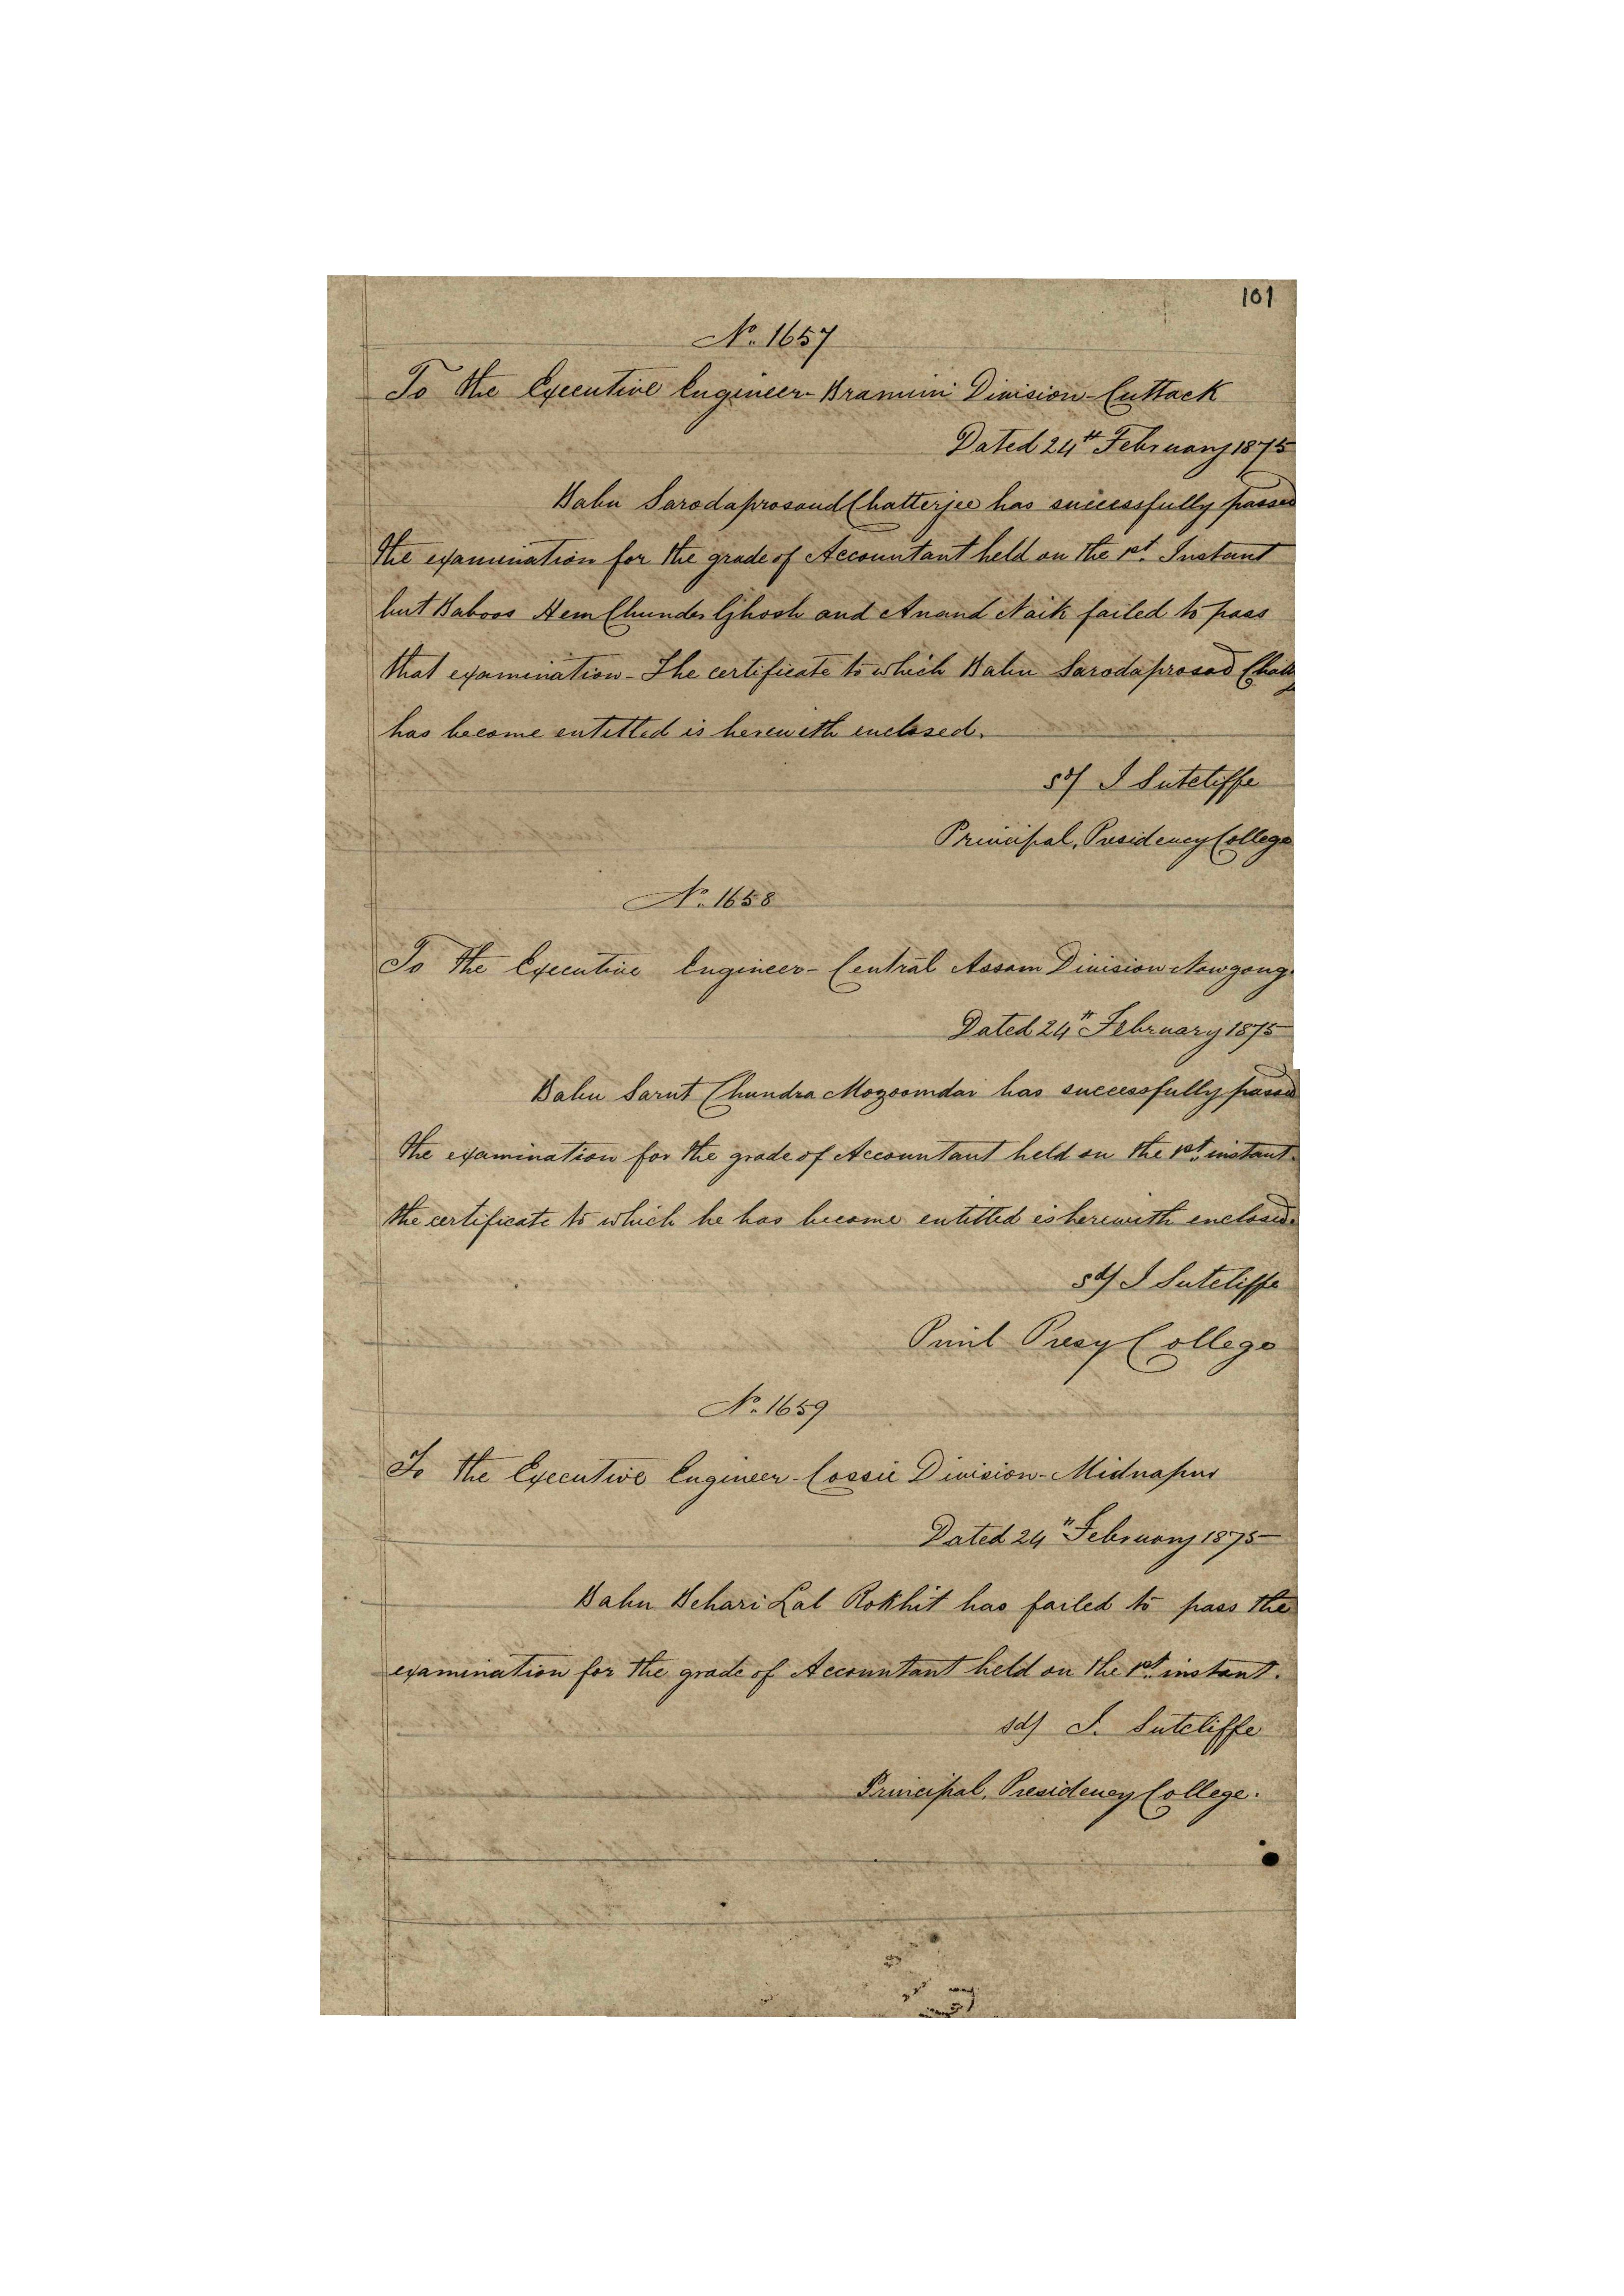 101
No. 1657
To the Executive Engineer - Bramini Division - Cuttack
Dated 24th February 1875
Babu Sarodaprosaud Chatterjee has successfully passed
the examination for the grade of Accountant held on the 1st. Instant
but Baboos Hem Chunder Ghosh and Anand Naik failed to pass
that examination - The certificate to which Babu Sarodaprosad Chatt
has become entitled is herewith enclosed.
sd/ J Sutcliffe
Principal, Presidency College
No. 1658
To the Executive Engineer - Central Assam Division Nowgong.
Dated 24th February 1875
Babu Sarut Chundra Mozoomdar has successfully passed
the examination for the grade of Accountant held on the 1st. instant.
the certificate to which he has become entitled is herewith enclosed.
sd/ J Sutcliffe
Princl Presy College
No. 1659
To the Executive Engineer - Cossie Division - Midnapur
Dated 24th February 1875
Babu Behari Lal Rokhit has failed to pass the
examination for the grade of Accountant held on the 1st. instant.
sd/ J. Sutcliffe
Principal, Presidency College.